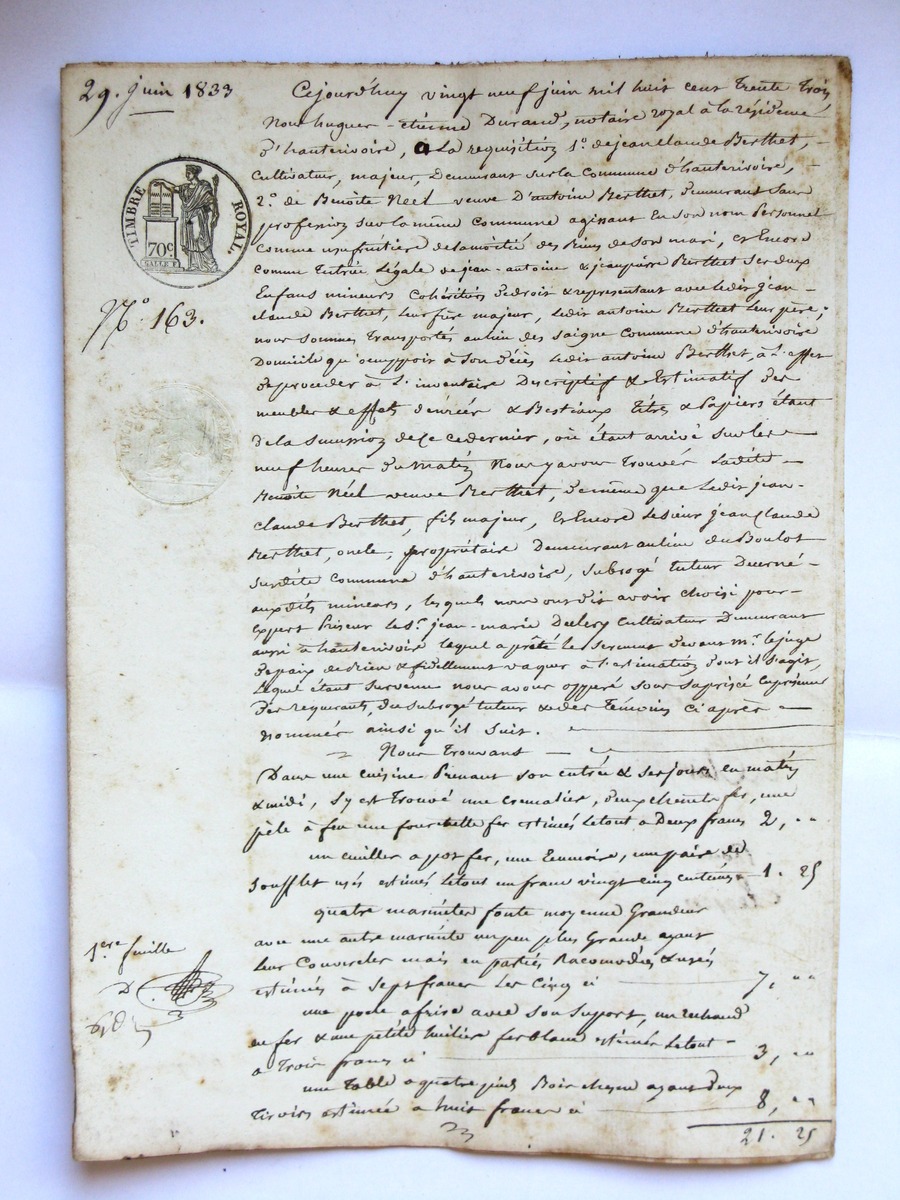 29. juin 1833
TIMBRE ROYAL.
70c.
N.° 163.
Cejourd'huy vingt neuf juin mil huit cent trente trois
Nous hugues-étienne Durand, notaire royal à la résidence
d'hauterivoire, a La requisition 1.° de jean claude Berthet,
Cultivateur, majeur, Demeurant sur la Commune d'hauterivoire,
2.° de Benoite Néel veuve D'antoine Berthet, demeurant sans
profession sur la même Commune agissant En son nom Personnel
comme usufruitiere delamoitié des Biens de son mari, et Encore
comme Tutrice Légale de jean-antoine & jean pierre Berthet ses deux
Enfans mineurs Cohéritiers de droit & representant avec ledit jean-
claude Berthet, leur frère majeur, ledit antoine Berthet leur père;
nous sommes Transportés au lieu des saigne Commune d'hauterivoire
Domicile qu'occuppoit à son décès ledit antoine Berthet, à L'effet
de proceder à L'inventaire Descriptif & Estimatif des
meubles & effets denrées & Bestiaux Titres & Papiers étant
de la succession de ce dernier, où étant arrivé sur les
neuf heures du matin Nous y avons Trouvés Ladite
Benoite Néel veuve Berthet, de même que Ledit jean-
claude Berthet, fils majeur, et Encore Le sieur jean Claude
Berthet, oncle, propriétaire Demeurant au lieu du Boulot
susdite Commune d'hauterivoire, subrogé tuteur Decerné
aux dits mineurs, lesquels nous ont dit avoir choisi pour
Expert Priseur le S.r jean-marie Cultivateur Demeurant
aussi à hauterivoire lequel a prêté le serment devant M.r le juge
de paix de Bien & fidellement vaquer à l'estimation dont il s'agit,
Lequel étant survenu nous avons opperé sous sa prisée En présence
Des requerants, du subrogé tuteur & des Témoins ci après
nommés ainsi qu'il suit.
Nous Trouvant
Dans une cuisine Prenant son entrée & ses jours en matin
& midi, s'y est Trouvé une cremalier, deux chenets fer, une
pèle à feu une fourchette fer estimés Letout a Deux francs 2, ""
un cuiller a pot fer, une Ecumoire, une paire de
soufflet usés estimés Letout un franc vingt cinq centimes 1. 25
quatre marmites fonte moyenne Grandeur
avec une autre marmite un peu plus Grande ayant
Leur Couvercles mais en parties Racomodés & usés
estimés à Sept francs Les Cinq ci 7, ""
une poele a frire avec son suport, un rechaud
en fer & une petite huilier fer blanc estimés Letout
a Trois francs ci 3, ""
une Table a quatre pieds Bois chesne ayant deux
Tiroirs estimée a huit francs ci 8, ""
21. 25
1.ere feuille
D